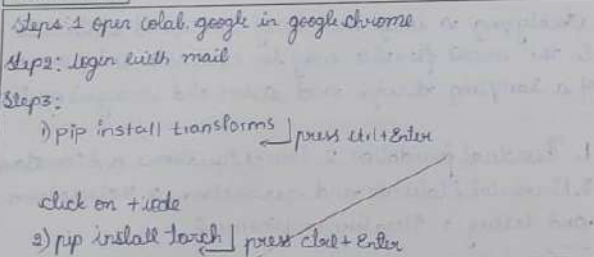 Steps:1 open colab.google in google chrome
Step2: login with mail
Step3:
1) pip install transforms press ctrl+Enter
click on +code
2) pip install torch press ctrl+Enter